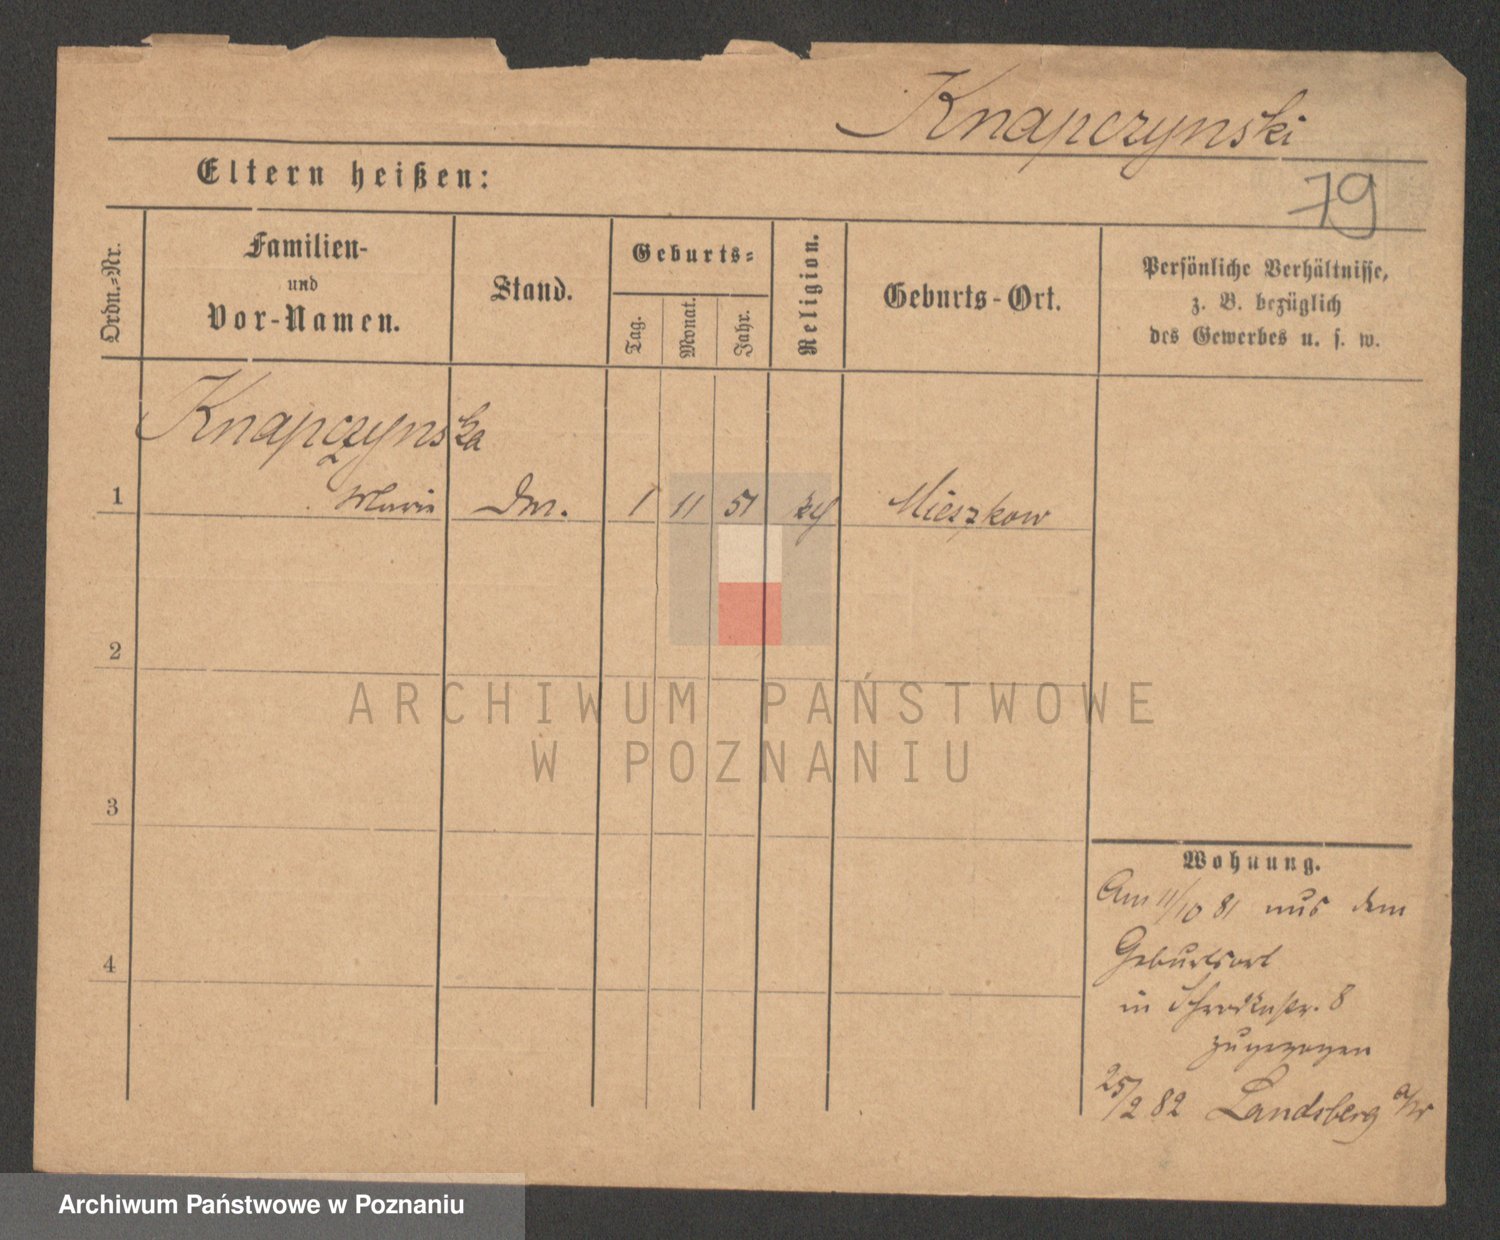 Knapczynski
79
Eltern heißen:
Ordn.-Nr.
Familien-
und
Vor-Namen.
Stand.
Geburts-
Tag.
Monat.
Jahr.
Religion.
Geburts-Ort.
Persönliche Verhältnisse,
z. B. bezüglich
des Gewerbes u. s. w.
Knapczynska
1 Marie 1 11 51 Mieszkow
2
3
4
Wohnung.
Am 11/10 81 aus dem
Geburtsort
in Schrodkastr. 8
zugezogen
25/2 82 Landsberg a/W
ARCHIWUM PAŃSTWOWE
W POZNANIU
Archiwum Państwowe w Poznaniu